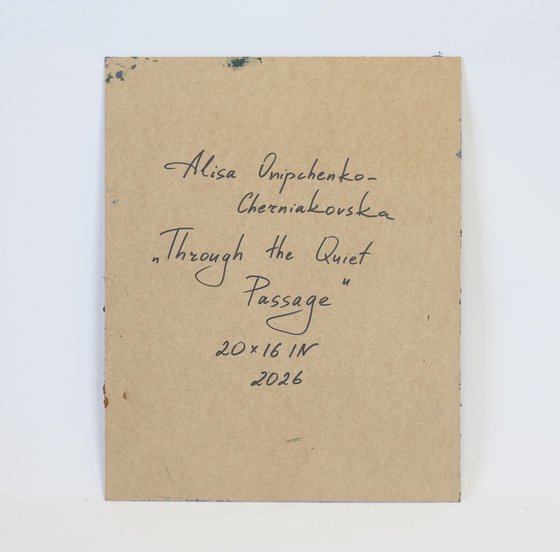 Alisa Onipchenko-
Cherniakovska
„Through the Quiet
Passage"
20×16 IN
2026